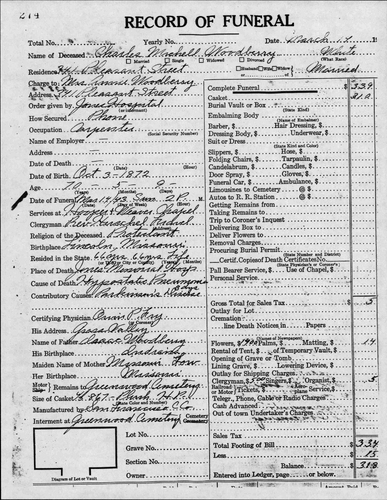 274
RECORD OF FUNERAL
Total No. Yearly No. Date March 12
Name of Deceased Charles Mitchell Woodberry White
Married Single Widowed Divorced (What Race)
Residence Pleasant Street Husband Wife Widow of Married
Charge to Mrs. Minnie Woodberry
Address Pleasant Street
Order given by Jones Hospital
How Secured Phone
Occupation Carpenter
(Social Security Number)
Name of Employer
Address
Date of Death
Date of Birth Oct. 3, 1872
Age 70
Date of Funeral Mar 14, 43 Sun 2 P. M.
Services at Chapel
Clergyman Rev. Herschel
Religion of the Deceased Protestant
Birthplace Lincoln, Missouri
Resided in the State
Place of Death Jones Memorial Hosp
Cause of Death Hypostatic Pneumonia
Contributory Causes Parkinson's Disease
Certifying Physician Ray
His Address Grass Valley
Name of Father Isaac Woodberry
His Birthplace
Maiden Name of Mother Missouri
Her Birthplace Missouri
Remains to Greenwood Cemetery
Size of Casket
(State Color and Number)
Manufactured by San Francisco C. Co.
Interment at Greenwood Cemetery Cemetery
Crematory
Lot No.
Grave No.
Section No.
Owner
Diagram of Lot or Vault
Complete Funeral $ 334
Casket 310
Burial Vault or Box
(State Kind)
Embalming Body
(Name of Embalmer)
Barber, $ Hair Dressing, $
Dressing Body, $ Underwear, $
Suit or Dress
(State Kind and Color)
Slippers, $ Hose, $
Folding Chairs, $ Tarpaulin, $
Candelabrum, $ Candles, $
Door Spray, $ Gloves, $
Funeral Car, $ Ambulance, $
Limousines to Cemetery @ $
Autos to R. R. Station @ $
Getting Remains from
Taking Remains to
Trip to Coroner's Inquest
Delivering Box to
Deliver Flowers to
Removal Charges
Procuring Burial Permit
(State Number and District)
Certif. Copies of Death Certificate
(State Physician's or Coroner's)
Pall Bearer Service, $ Use of Chapel, $
Personal Service
Gross Total for Sales Tax $ 5
Outlay for Lot
Cremation
line Death Notices in Papers
Flowers, $ Palms, $ Matting, $ 14
Rental of Tent, $ of Temporary Vault, $
Opening of Grave or Tomb
Lining Grave, $ Lowering Device, $
Outlay for Shipping Charges
Clergyman, $ Singers, $ Organist, $ 5
Railroad Tickets, $
Telegr., Phone, Cable or Radio Charges
Cash Advanced
Out of town Undertaker's Charge
Sales Tax $
Total Footing of Bill $ 334
Less $ 15
Balance $ 318
Entered into Ledger, page or below.